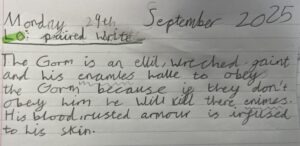 Monday 29th September 2025
LO: paired write
The Gorm is an eliil, wreched gaint
and his enamles have to obey
the Gorm because if they don't
obey him he will kill there enimes.
His blood, rusted armour is infused
to his skin.